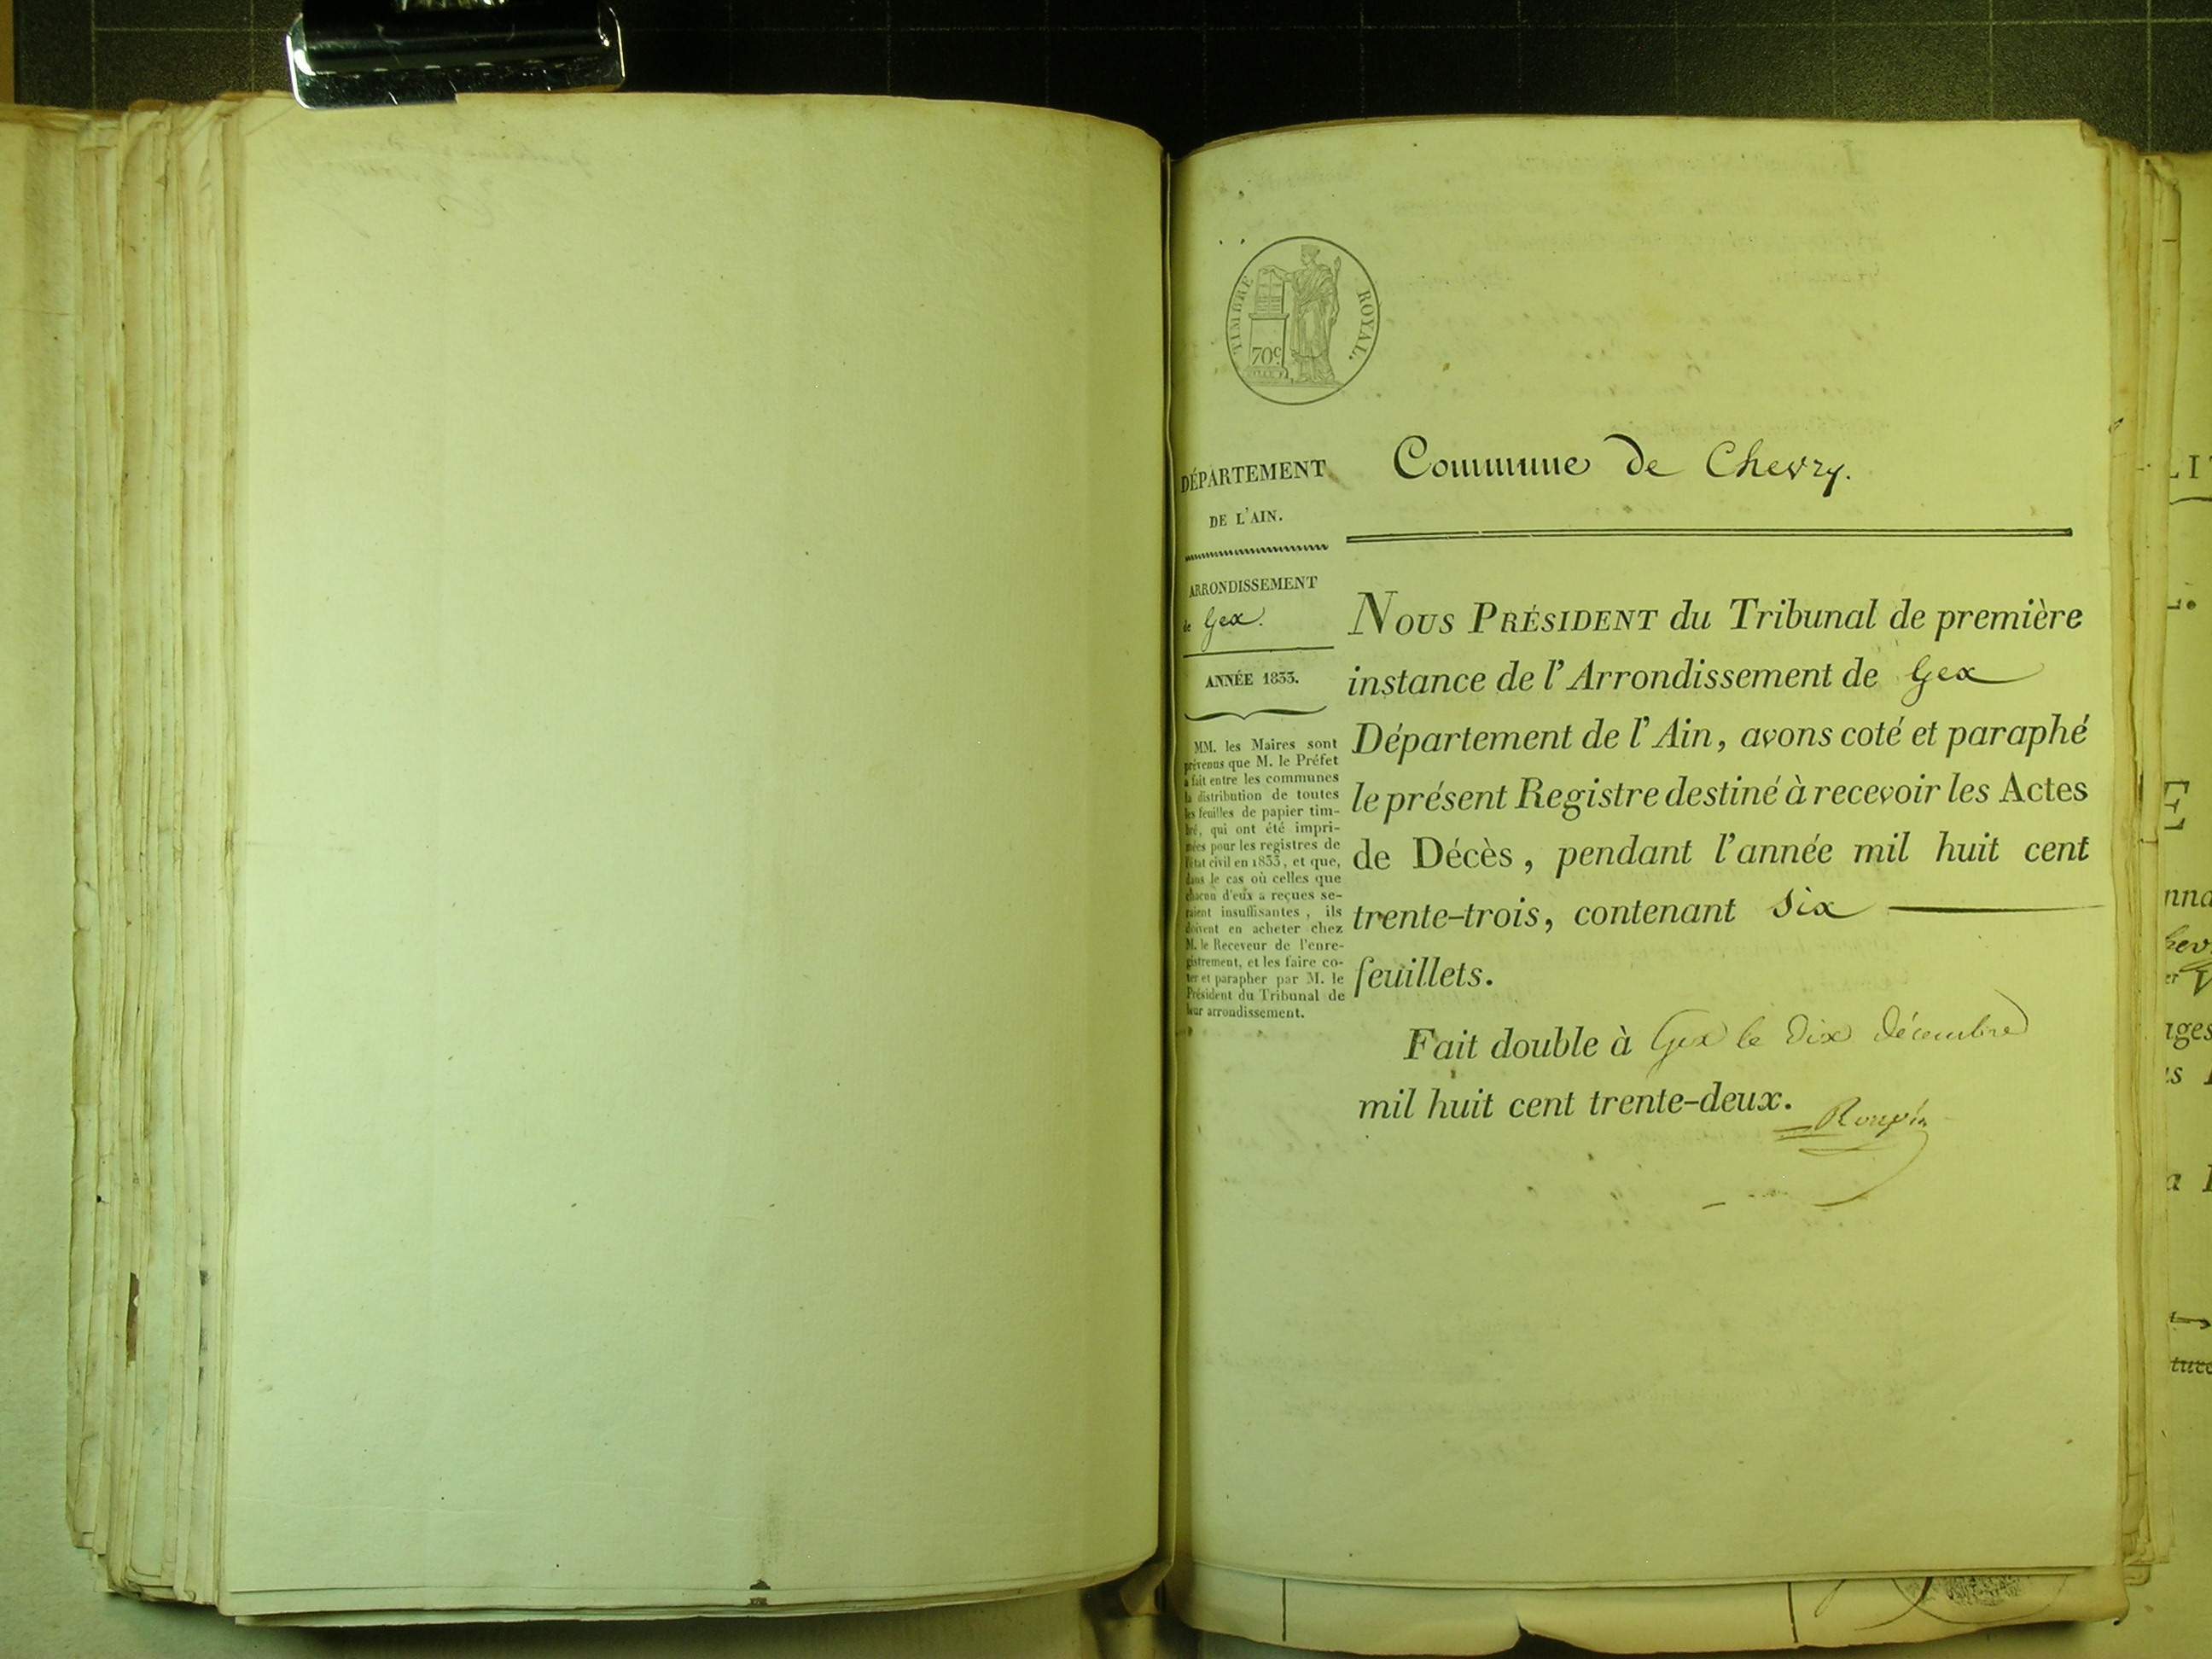 TIMBRE ROYAL.
70c
Commune de Chevry.
DÉPARTEMENT
DE L'AIN.
ARRONDISSEMENT
de Gex.
ANNÉE 1833.
MM. les Maires sont
prévenus que M. le Préfet
a fait entre les communes
la distribution de toutes
les feuilles de papier tim-
bré, qui ont été impri-
mées pour les registres de
l'état civil en 1833, et que,
dans le cas où celles que
chacun d'eux a reçues se-
raient insuffisantes, ils
doivent en acheter chez
M. le Receveur de l'enre-
gistrement, et les faire co-
ter et parapher par M. le
Président du Tribunal de
leur arrondissement.
NOUS PRÉSIDENT du Tribunal de première
instance de l'Arrondissement de Gex
Département de l'Ain, avons coté et paraphé
le présent Registre destiné à recevoir les Actes
de Décès, pendant l'année mil huit cent
trente-trois, contenant six
feuillets.
Fait double à Gex le dix décembre
mil huit cent trente-deux.